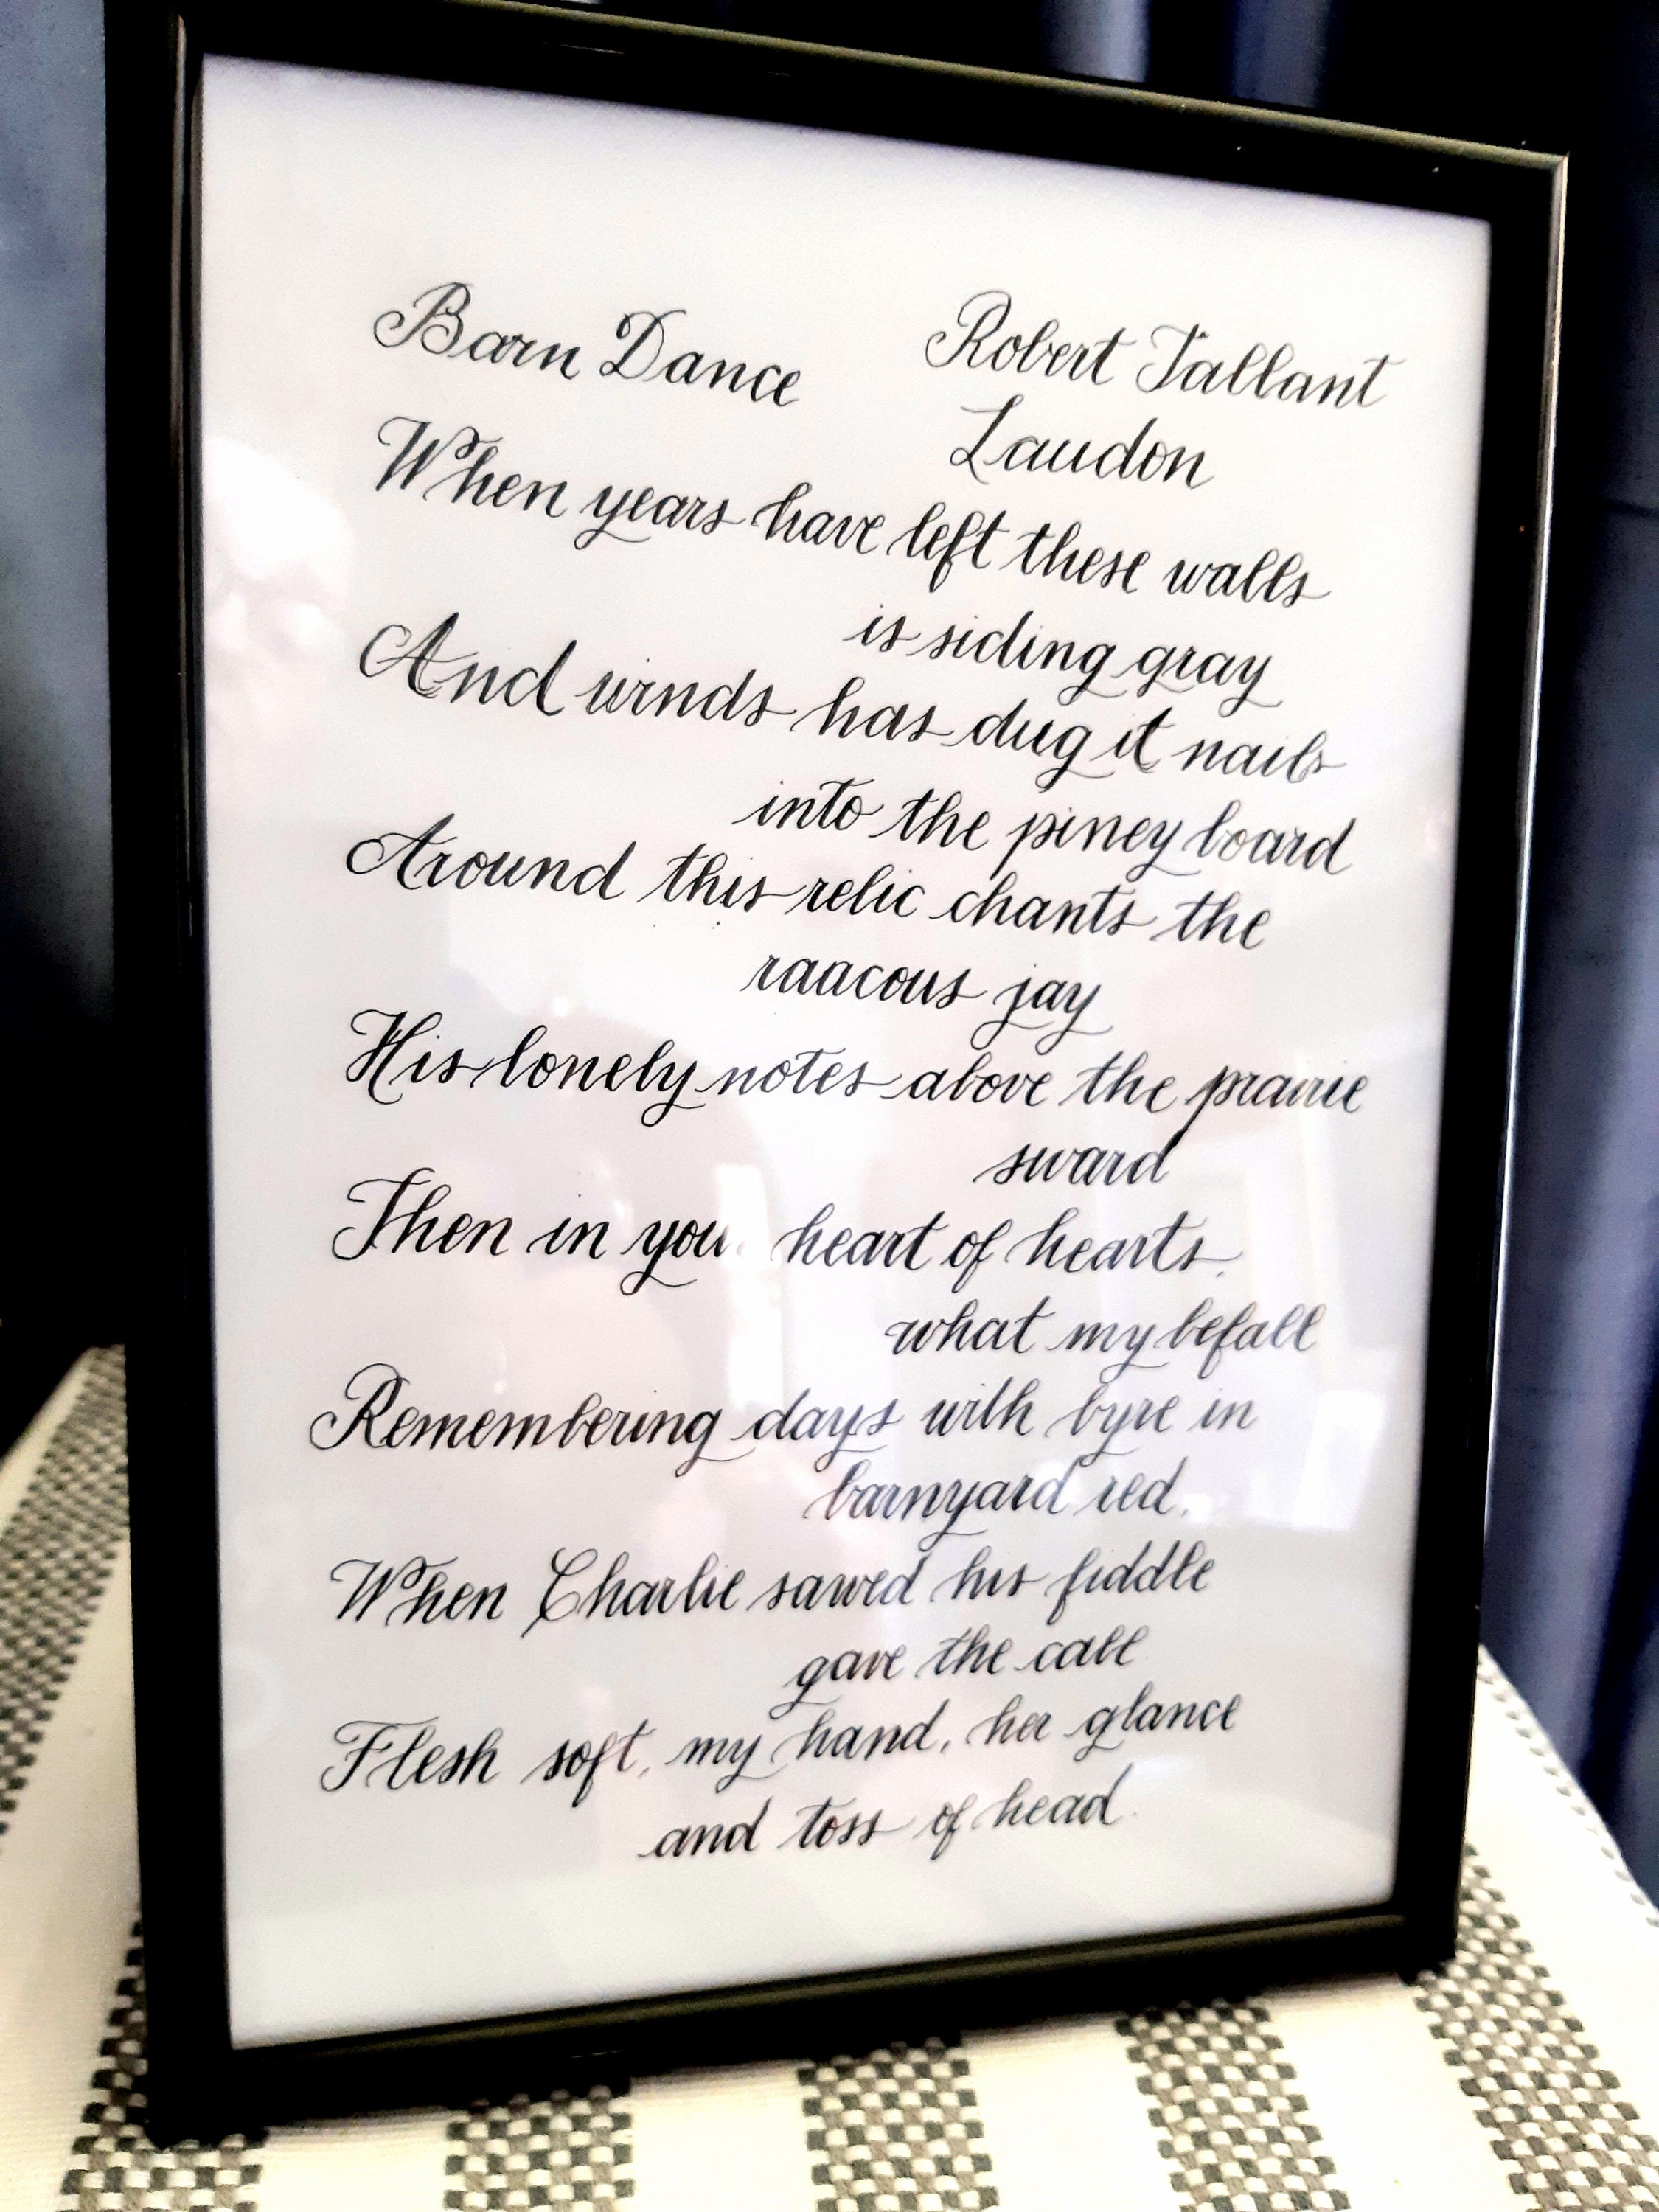 Barn Dance Robert Tallant
Laudon
When years have left these walls
is siding gray
And winds has dug it nails
into the piney board
Around this relic chants the
raacous jay
His lonely notes above the prairie
sward
Then in you heart of hearts.
what my befall
Remembering days with byre in
barnyard red.
When Charlie sawed his fiddle
gave the call
Flesh soft, my hand, her glance
and toss of head.